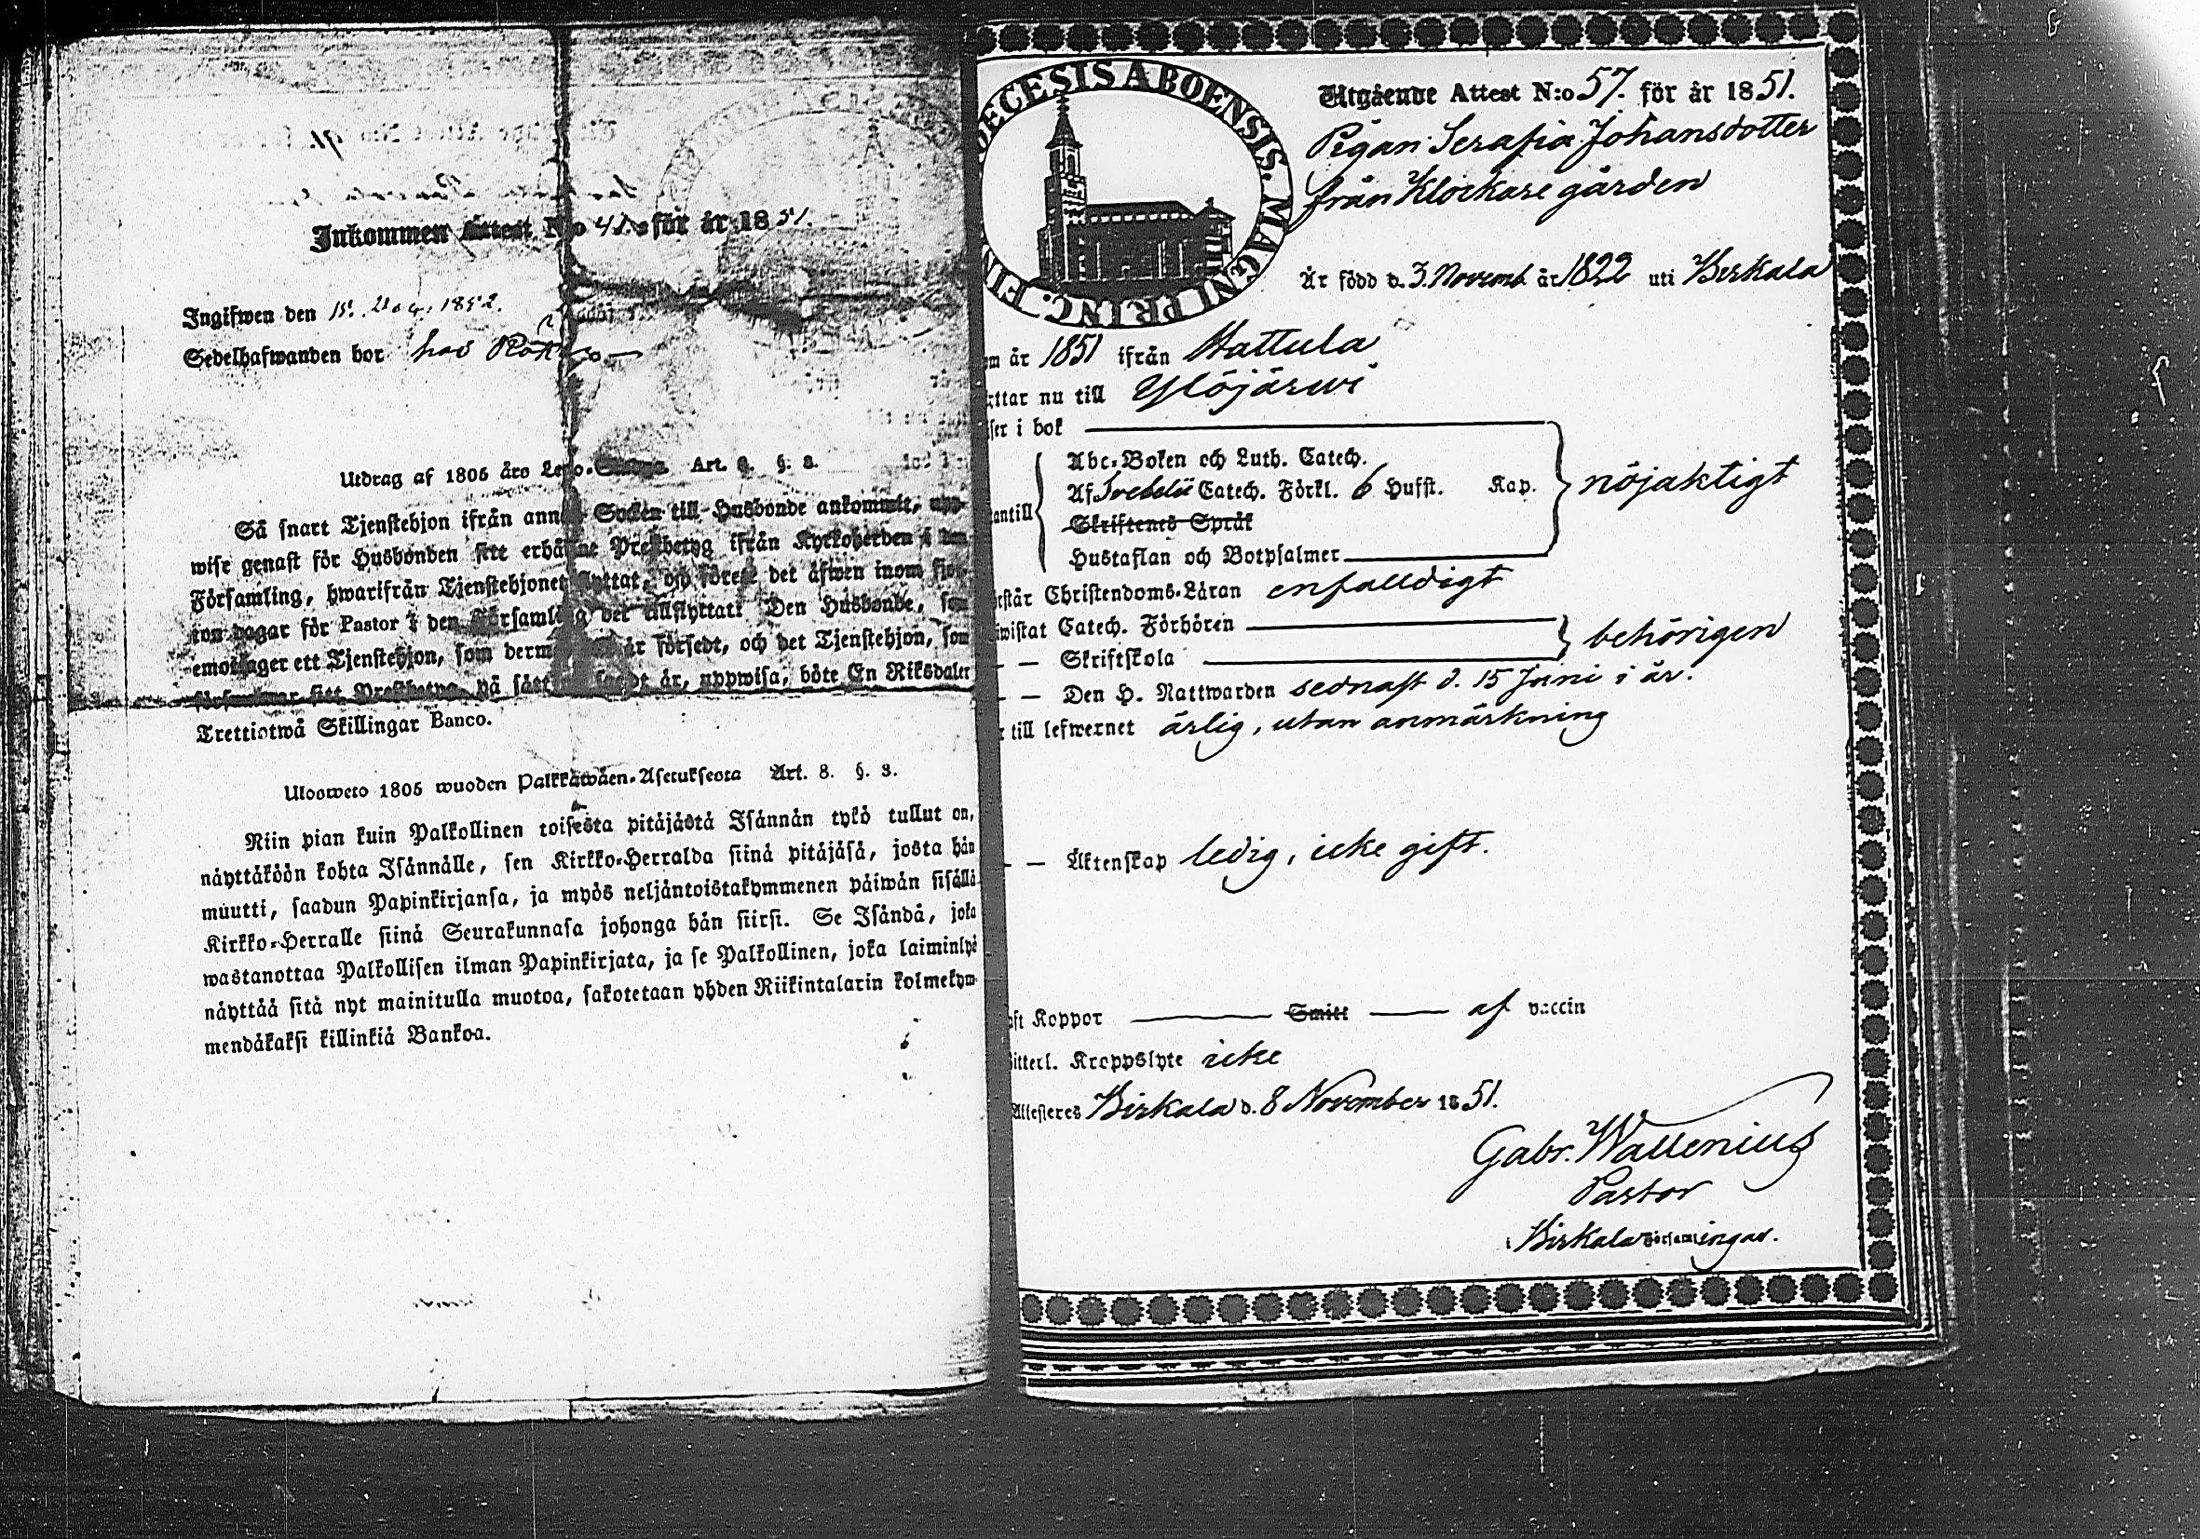 Inkommen Attest N:o för år 1851.
Ingifwen den 15. 1852.
Sedelhafwanden bor hos
Utdrag af 1805 års Lego- Art. §. 3.
Så snart Tjenstehjon ifrån annan Socken till Husbonde ankommit, upp-
wise genast för Husbonden sitt erhållne Prestbetyg ifrån Kyrkoherden i den
Församling, hwarifrån Tjenstehjonet flyttat, och förete det äfwen inom fjor-
ton dagar för Pastor i den Församling det tillflyttat. Den Husbonde, som
emottager ett Tjenstehjon, som dermed är försedt, och det Tjenstehjon, som
försummar sitt Prestbetyg på sätt sagdt är, uppwisa, böte En Riksdaler
Trettiotwå Skillingar Banco.
Ulosweto 1805 wuoden Palkkawäen-Asetuksesta Art. 8. §. 3.
Niin pian kuin Palkollinen toisesta pitäjästä Isännän tykö tullut on,
näyttäköön kohta Isännälle, sen Kirkko-Herralda siinä pitäjäsä, josta hän
muutti, saadun Papinkirjansa, ja myös neljäntoistakymmenen päiwän sisällä
Kirkko-Herralle siinä Seurakunnasa johonga hän siirsi. Se Isändä, joka
wastanottaa Palkollisen ilman Papinkirjata, ja se Palkollinen, joka laiminlyö
näyttää sitä nyt mainitulla muotoa, sakotetaan yhden Riikintalarin kolmekym-
mendäkaksi killinkiä Bankoa.
DIOECESIS ABOENSIS. MAGNI PRINC. FIN
Utgående Attest N:o 57. för år 1851.
Pigan Serafia Johansdotter
från Klockare gården
Är född d. 3. Novemb. år 1822 uti Birkala
om år 1851 ifrån Hattula
yttar nu till Ylöjärwi
ser i bok
antill
Abc-Boken och Luth. Catech.
Af Svebelii Catech. Förkl. 6 Hufst. Kap.
Skriftenes Språk
Hustaflan och Botpsalmer
nöjaktigt
estår Christendoms-Läran enfalldigt
iwistat Catech. Förhören
— — Skriftskola
behörigen
— — Den H. Nattwarden sednast d. 15 Juni i år.
r till lefwernet ärlig, utan anmärkning
— — Äktenskap ledig, icke gift.
aft Koppor — Smitt — af vaccin
itterl. Kroppslyte icke
Attesteres Birkala d. 8 November 1851.
Gabr. Wallenius
Pastor
i Birkala Församlingar.